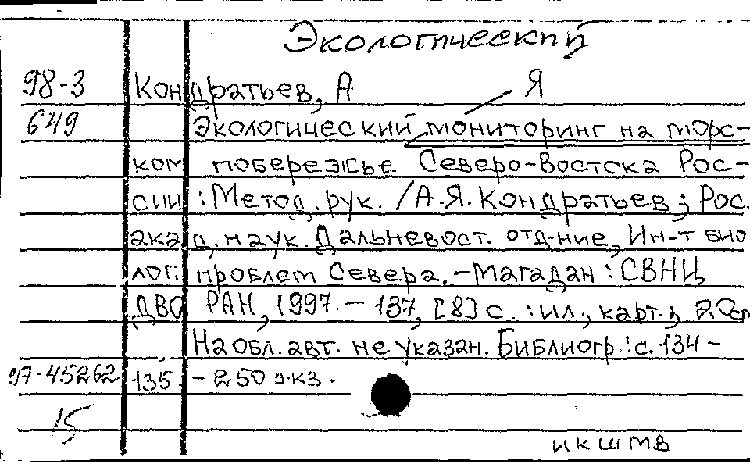 Экологический
98-3 Кондратьев, А Я
649 Экологический мониторинг на морс-
ком побережье Северо-Востока Рос-
сии : Метод. рук. / А.Я. Кондратьев ; Рос.
акад. наук. Дальневост. отд-ние, Ин-т био
логи проблем Севера. - Магадан : СВНЦ
ДВО РАН, 1997. - 137, [8] с. : ил., карт.;
На обл. авт. не указан. Библиогр.: с. 134-
97-45262 135. - 250 экз.
15
икштв